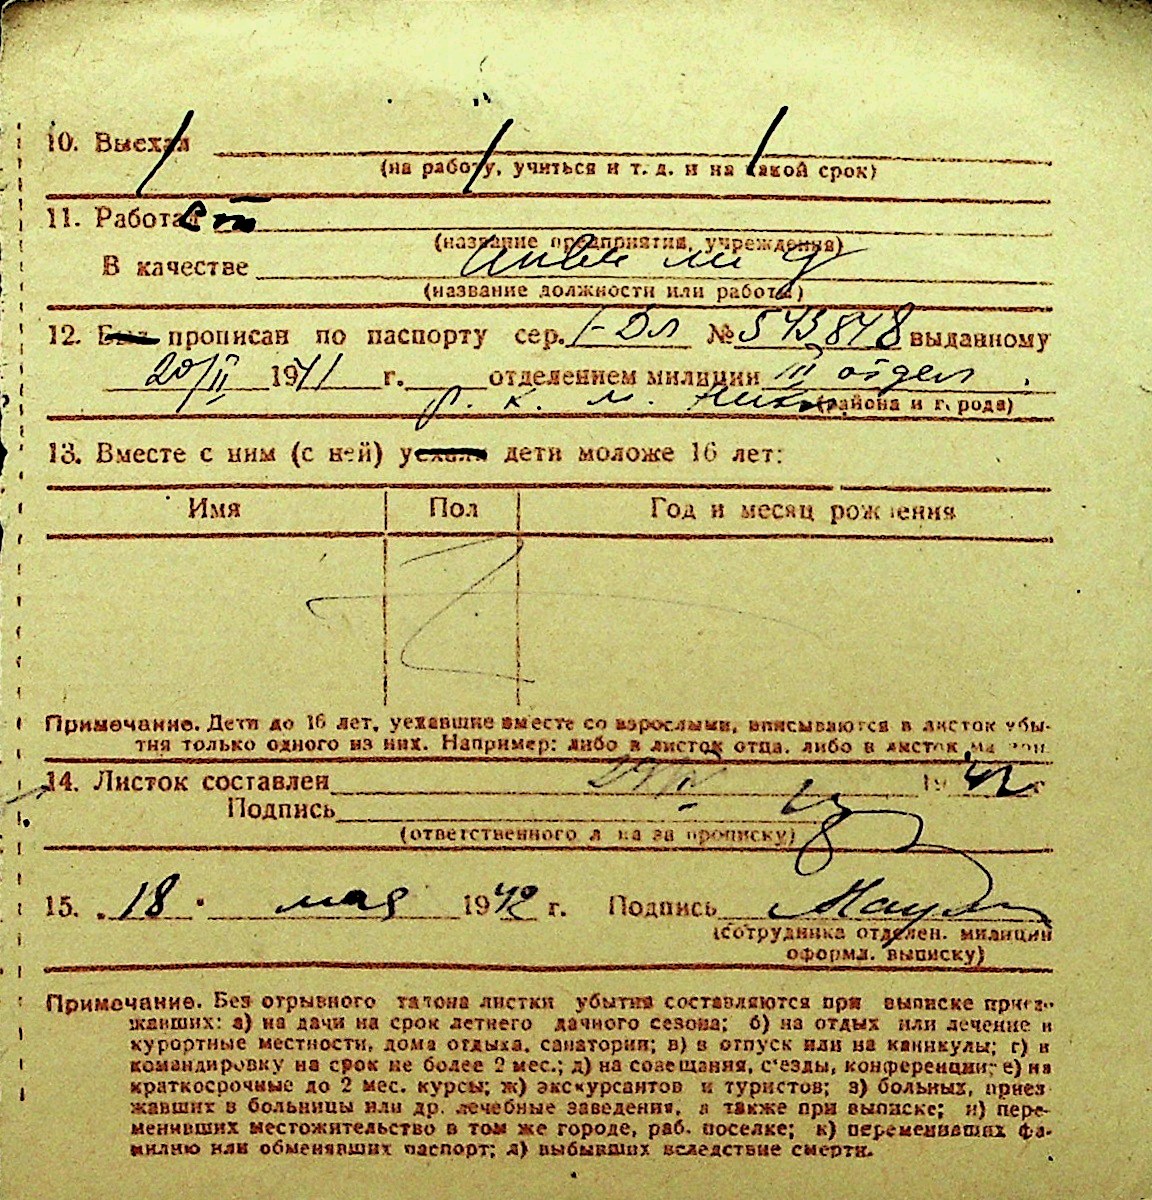 10. Выехал
(на работу, учиться и т. д. и на какой срок)
11. Работал
(название предприятия, учреждения)
В качестве инвалид
(название должности или работы)
12. Был прописан по паспорту сер. I-Дл № 543848 выданному
20/II 1941 г. отделением милиции III отдел
р. к. м.
(района и города)
13. Вместе с ним (с ней) уехали дети моложе 16 лет:
Имя Пол Год и месяц рождения
Примечание. Дети до 16 лет, уехавшие вместе со взрослыми, вписываются в листок убы-
тия только одного из них. Например: либо в листок отца, либо в листок матери.
14. Листок составлен 29/IV 1942 г
Подпись
(ответственного лица за прописку)
15. 18 мая 1942 г. Подпись
(сотрудника отделен. милиции
оформл. выписку)
Примечание. Без отрывного талона листки убытия составляются при выписке приез-
жавших: а) на дачи на срок летнего дачного сезона; б) на отдых или лечение в
курортные местности, дома отдыха, санатории; в) в отпуск или на каникулы; г) в
командировку на срок не более 2 мес.; д) на совещания, съезды, конференции; е) на
краткосрочные до 2 мес. курсы; ж) экскурсантов и туристов; з) больных, приез-
жавших в больницы или др. лечебные заведения, а также при выписке; и) пере-
менивших местожительство в том же городе, раб. поселке; к) переменивших фа-
милию или обменявших паспорт; л) выбывших вследствие смерти.